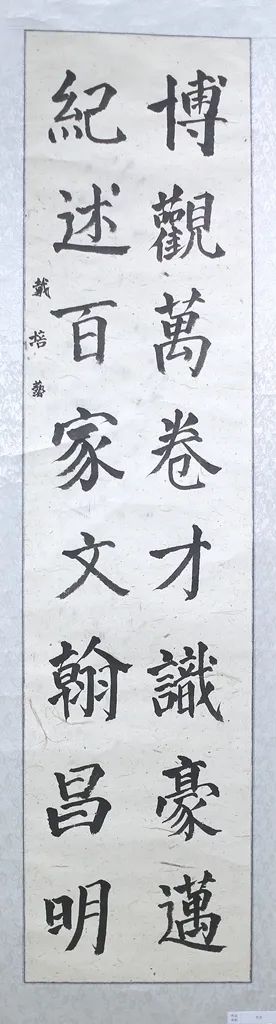 博觀萬卷才識豪邁
紀述百家文翰昌明
戴培藝